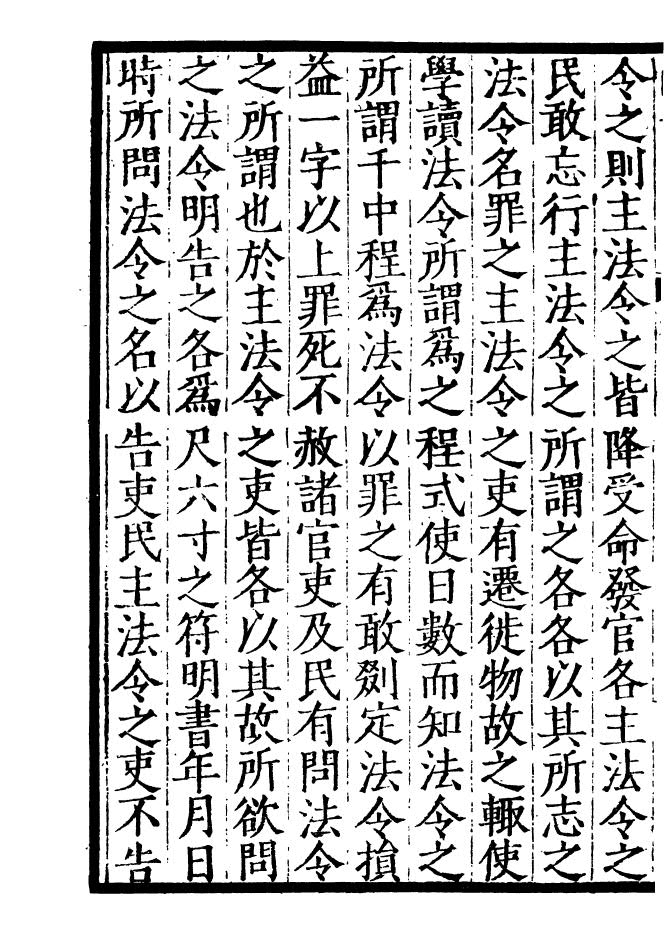 令之則主法令之皆降受命發官各主法令之
民敢忘行主法令之所謂之各各以其所志之
法令名罪之主法令之吏有遷徙物故之輙使
學讀法令所謂爲之程式使日數而知法令之
所謂千中程爲法令以罪之有敢剟定法令損
益一字以上罪死不赦諸官吏及民有問法令
之所謂也於主法令之吏皆各以其故所欲問
之法令明告之各爲尺六寸之符明書年月日
時所問法令之名以告吏民主法令之吏不告